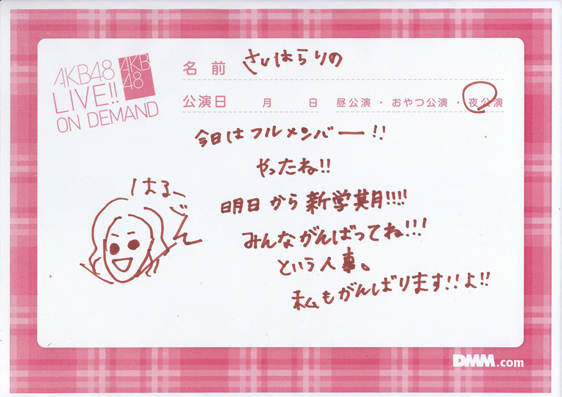 AKB48
LIVE!!
ON DEMAND
AKB
48
名前 さしはらりの
公演日 月 日 昼公演・おやつ公演・夜公演
今日はフルメンバー!!
やったね!!
明日から新学期!!!!
みんながんばってね!!!
という人事。
私もがんばります!!よ!!
はるーごん
DMM.com